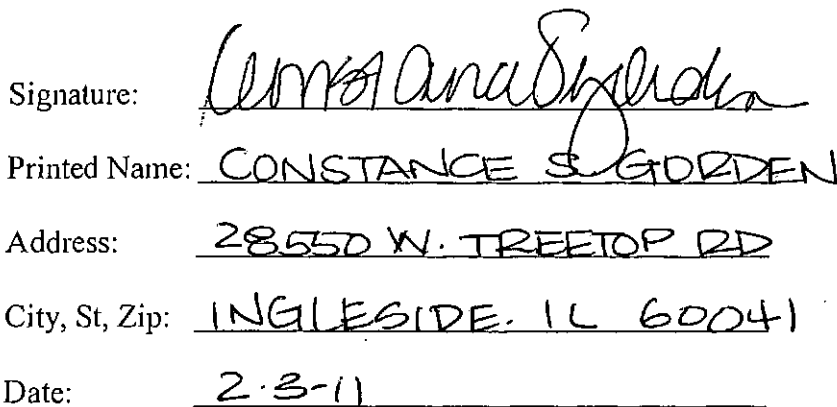 Signature: Constance S Gorden
Printed Name: CONSTANCE S. GORDEN
Address: 28550 W. TREETOP RD
City, St, Zip: INGLESIDE. IL 60041
Date: 2-3-11